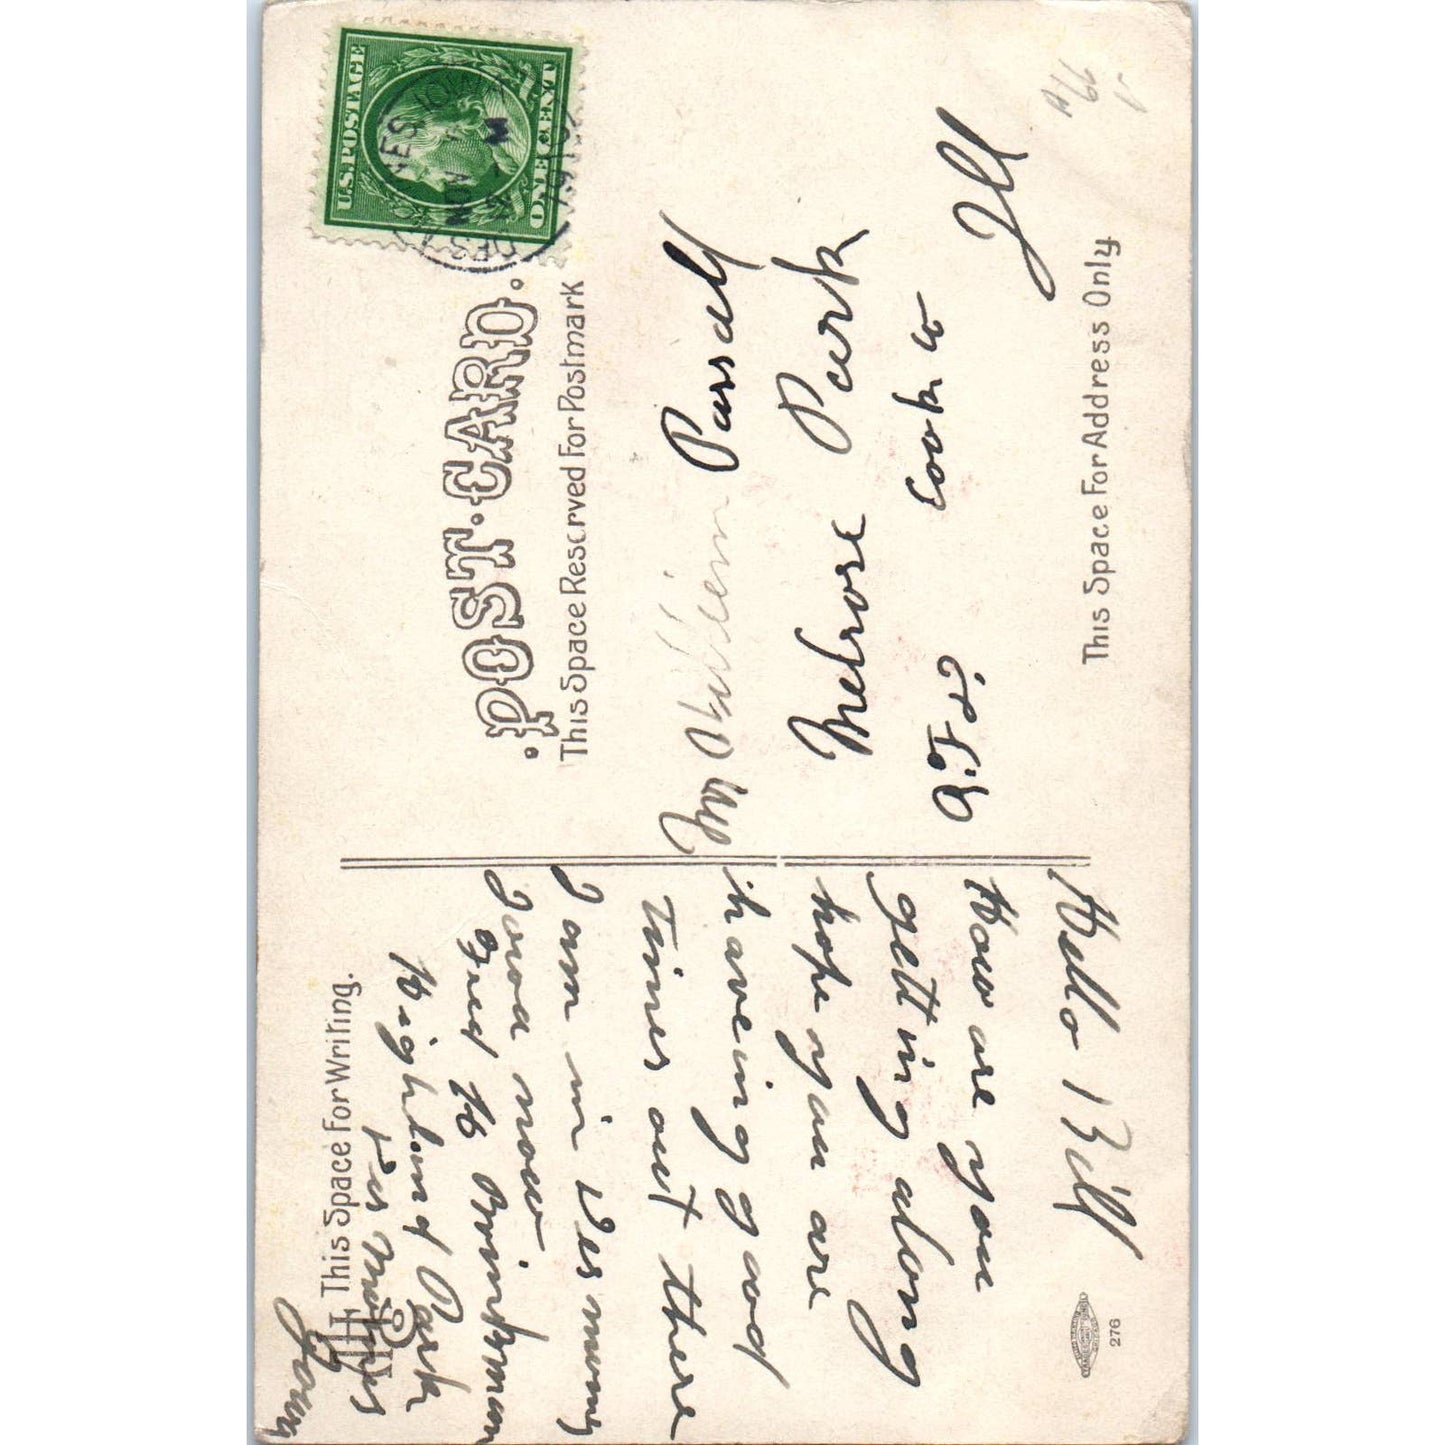 U.S. POSTAGE
ONE CENT
DES
NOV
1910
·POST·CARD·
This Space Reserved For Postmark
This Space For Writing.
This Space For Address Only
Hello Bill
How are you
getting along
hope you are
haveing good
Times out there
I am in Des
Iowa now
Fred H Brinkman
Highland Park
Des Moines
Iowa
Mr William Parsell
Melrose Park
Cook co
Ill
276